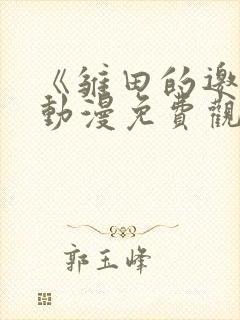 《雏田的邀
動漫免費觀
郭玉峰